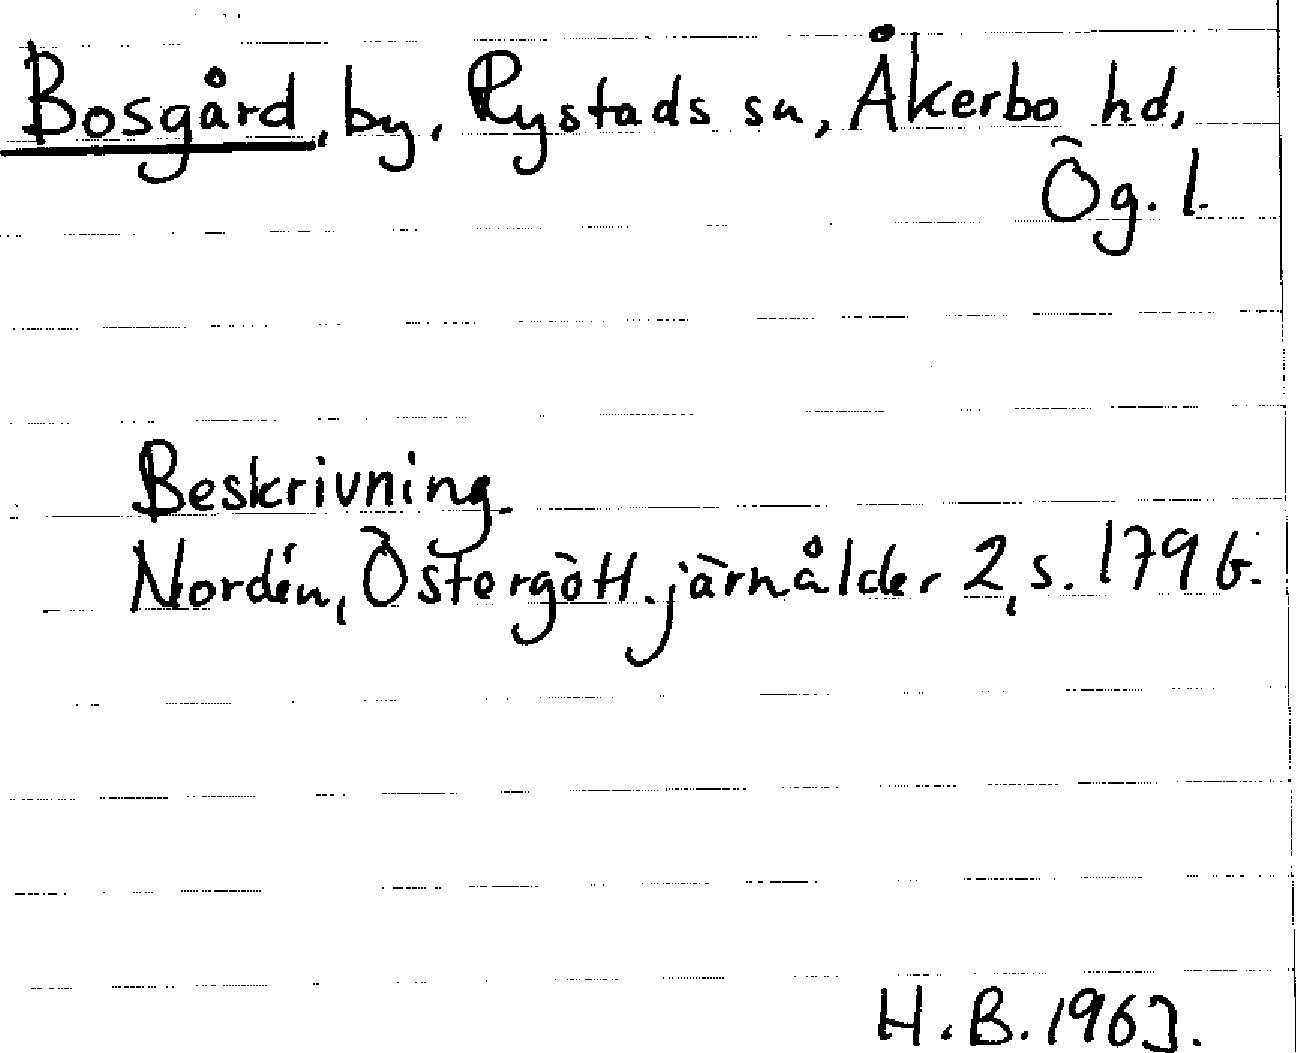 Bosgård, by, Rystads sn, Åkerbo hd,
Ög. l.
Beskrivning.
Nordén, Östergött. järnålder 2, s. 179 b.
H.B. 1963.